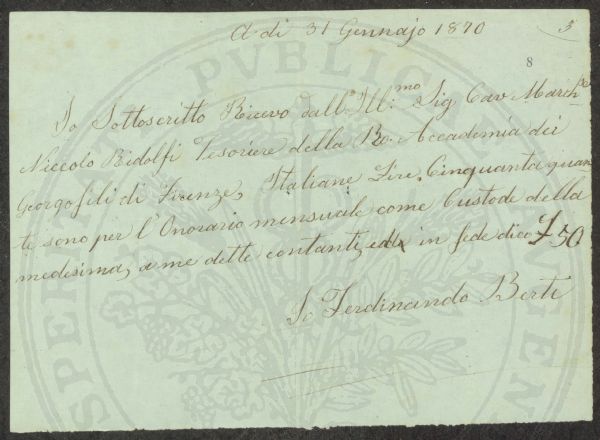 A di 31 Gennajo 1870
5
8
Io Sottoscritto Ricevo dall'Ill:mo Sig Cav March:e
Niccolo Ridolfi Tesoriere della R. Accademia dei
Georgofili di Firenze, Italiane Lire Cinquanta quan
te sono per l'Onorario mensuale come Custode della
medesima, a me dette contanti, in fede dico £ 50
Io Ferdinando Berti
PVBLICAE